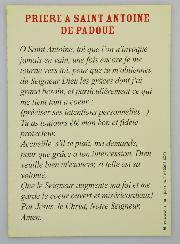 PRIERE A SAINT ANTOINE
DE PADOUE
O Saint Antoine, toi que l'on n'invoque
jamais en vain, une fois encore je me
tourne vers toi, pour que tu m'obtiennes
du Seigneur Dieu les grâces dont j'ai
grand besoin, et particulièrement ce qui
me tient tant à coeur :
(préciser ses intentions personnelles...)
Tu as toujours été mon bon et fidèle
protecteur.
Accueille, s'il te plaît, ma demande,
pour que grâce à ton intercession, Dieu
veuille bien m'exaucer, si telle est sa
volonté.
Que le Seigneur augmente ma foi et me
garde le coeur ouvert et miséricordieux!
Par Jésus, le Christ, Notre Seigneur,
Amen.